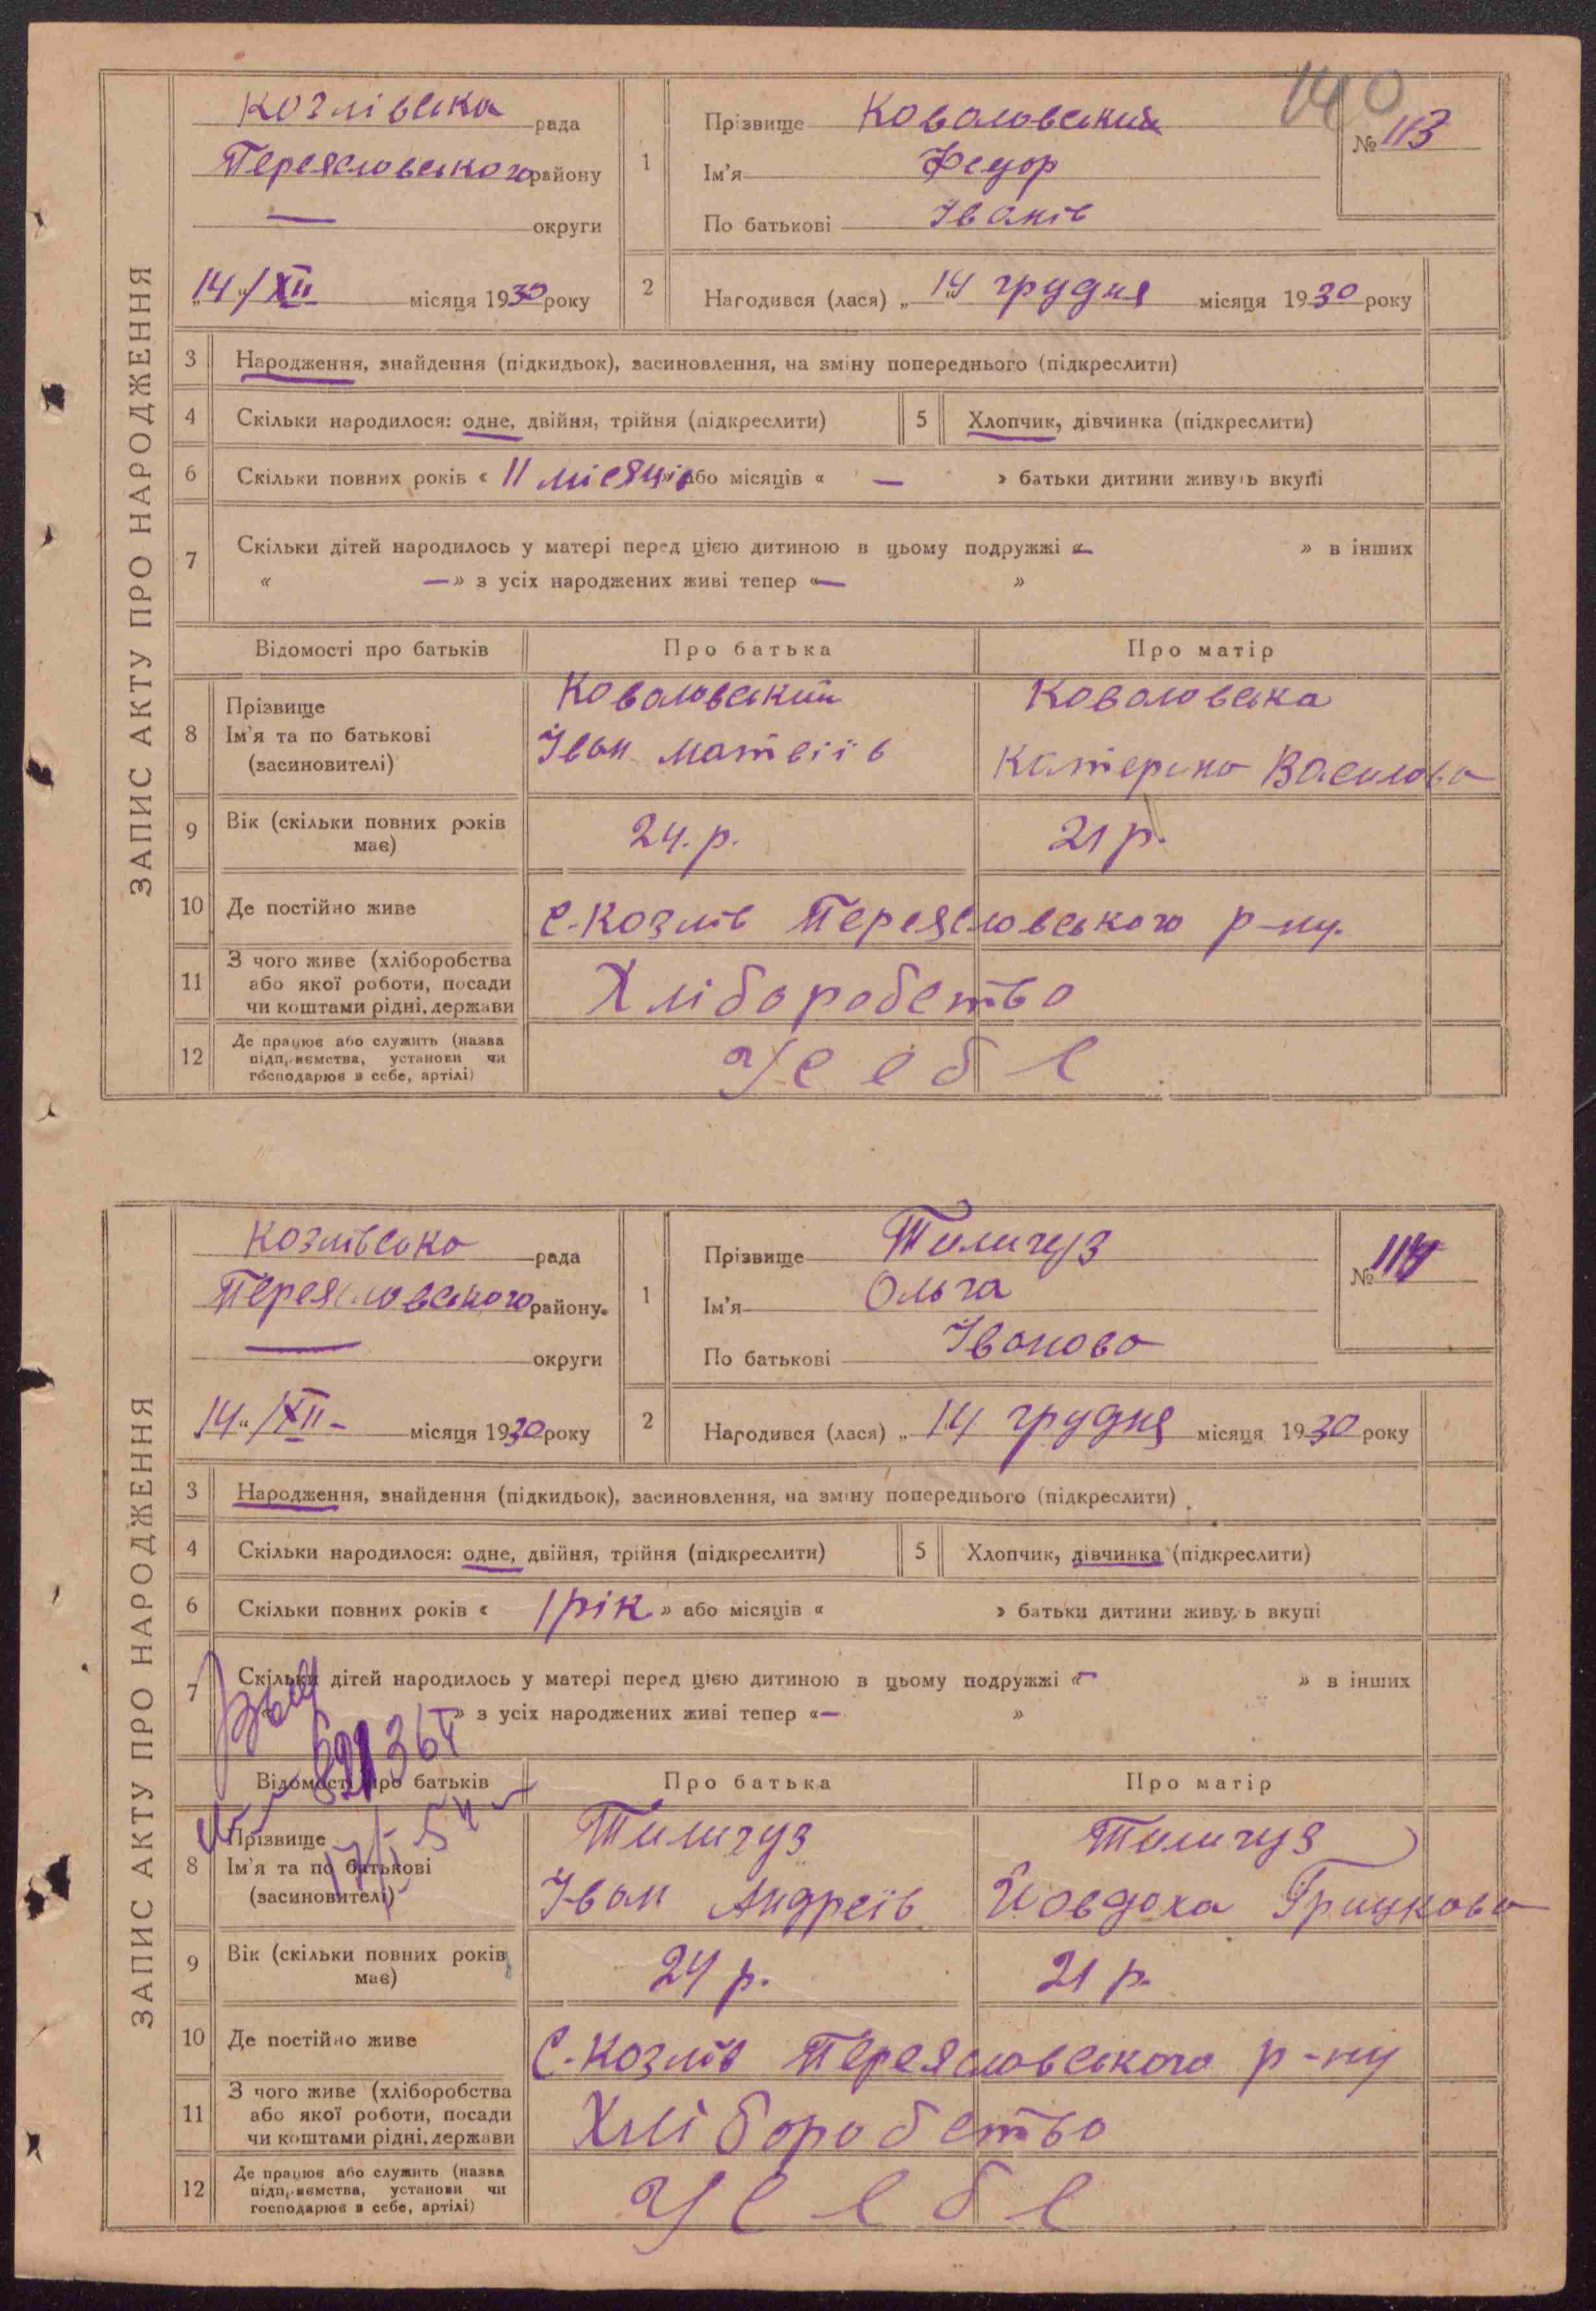 140
ЗАПИС АКТУ ПРО НАРОДЖЕННЯ
Козлівська рада
Переяславського району
— округи
„14“/XII місяця 1930 року
1 Прізвище Коваловський
Ім'я Федор
По батькові Іванів
№ 113
2 Народився (лася) „14“ грудня місяця 1930 року
3 Народження, знайдення (підкидьок), засиновлення, на зміну попереднього (підкреслити)
4 Скільки народилося: одне, двійня, трійня (підкреслити) 5 Хлопчик, дівчинка (підкреслити)
6 Скільки повних років « 11 місяців » або місяців « — » батьки дитини живуть вкупі
7 Скільки дітей народилось у матері перед цією дитиною в цьому подружжі «— » в інших
« —» з усіх народжених живі тепер «— »
Відомості про батьків Про батька Про матір
8 Прізвище Коваловський Коваловська
Ім'я та по батькові Іван Матвіїв Катерина Василова
(засиновителі)
9 Вік (скільки повних років має) 24. р. 21 р.
10 Де постійно живе с. Козлів Переяславського р-ну.
11 З чого живе (хліборобства
або якої роботи, посади Хліборобство
чи коштами рідні, держави
12 Де працює або служить (назва
підприємства, установи чи У себе
господарює в себе, артілі)
ЗАПИС АКТУ ПРО НАРОДЖЕННЯ
Козлівська рада
Переяславського району
— округи
„14“/XII– місяця 1930 року
1 Прізвище
Ім'я Ольга
По батькові Іванова
№ 114
2 Народився (лася) „14 грудня місяця 1930 року
3 Народження, знайдення (підкидьок), засиновлення, на зміну попереднього (підкреслити)
4 Скільки народилося: одне, двійня, трійня (підкреслити) 5 Хлопчик, дівчинка (підкреслити)
6 Скільки повних років « 1 рік » або місяців « » батьки дитини живуть вкупі
7 Скільки дітей народилось у матері перед цією дитиною в цьому подружжі «— » в інших
« » з усіх народжених живі тепер «— »
Відомості про батьків Про батька Про матір
8 Прізвище
Ім'я та по батькові Іван Андреїв Йовдоха Грицкова
(засиновителі)
9 Вік (скільки повних років має) 24 р. 21 р.
10 Де постійно живе С. Козлів Переяславського р-ну
11 З чого живе (хліборобства
або якої роботи, посади Хліборобство
чи коштами рідні, держави
12 Де працює або служить (назва
підприємства, установи чи У себе
господарює в себе, артілі)